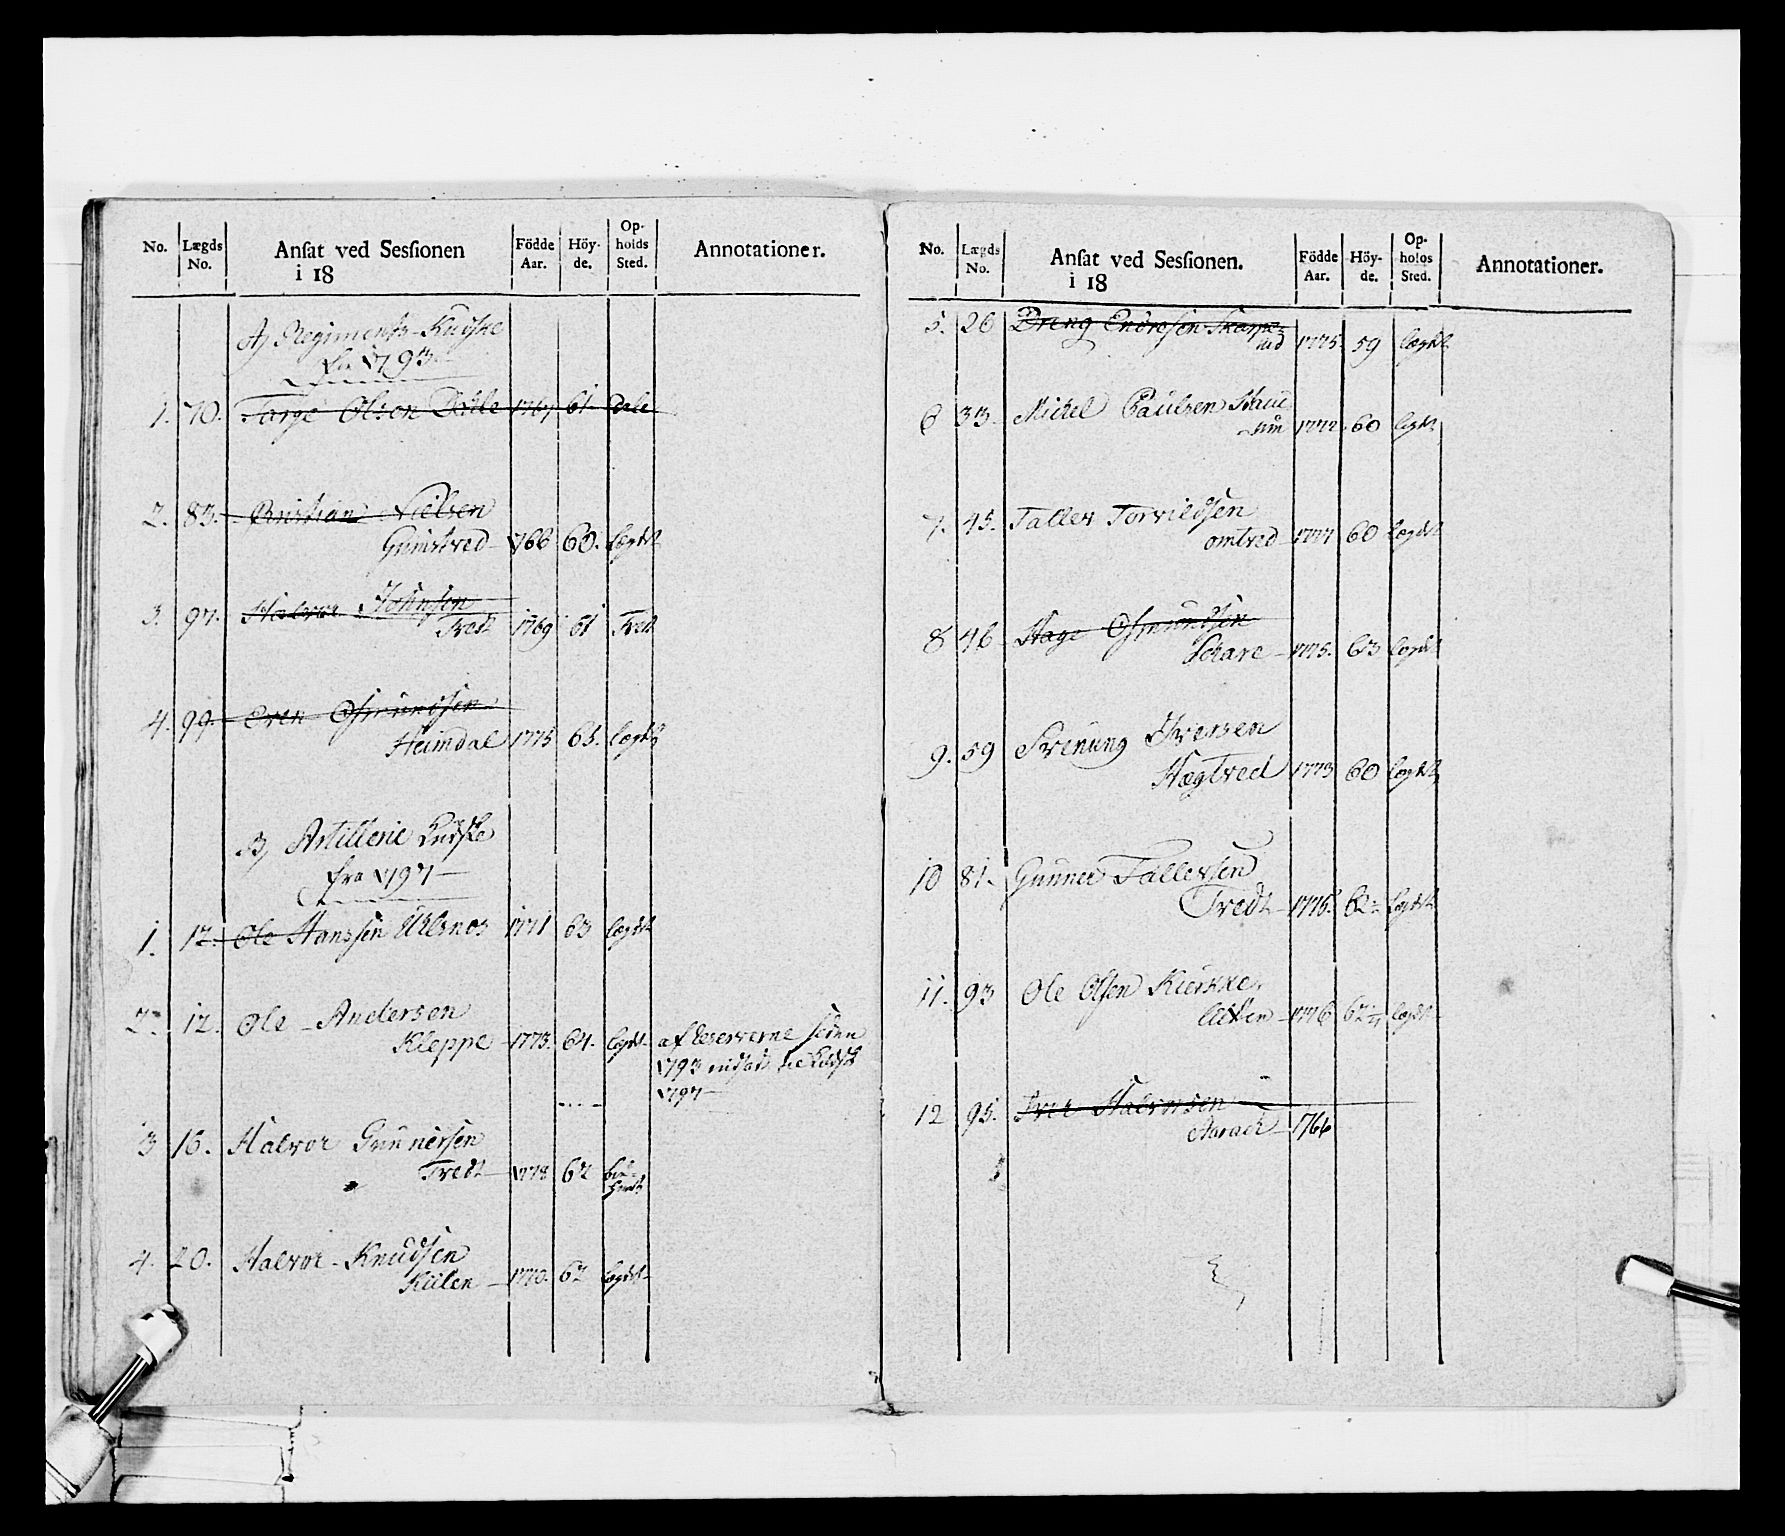 No. Lægds No. Ansat ved Sessionen i 18 Födde Aar. Höy-de. Op-holds Sted. Annotationer.
A) Regiments-Kudske
fra 1793
1. 70. Targe Olson Dale 1767 61. Dale
2. 83. Christian Nielsen
Grimstved 1766 60. lægdet
3. 97. Halvor Johnsen
Tredt 1769 61 Tredt
4. 99. Even Osmundsen
Heimdal 1775 65. lægdet
B) Artillerie Kudske
fra 1797
1. 12. Ole Hanssen Uhlsnes 1771 63 lægdet
2. 12. Ole Andersen
Kleppe 1773. 64. lægdet af Reserverne siden
1793 Kudsk
1797
3 16. Halvor Gunnersen
Tredt 1778 62
4. 20. Halvor Knudsen
Kiilen 1770. 62 lægdet
No. Lægds No. Ansat ved Sessionen. i 18 Födde Aar. Höy-de. Op-holds Sted. Annotationer.
5. 26 Dreng Endresen Skarpe-
rud 1775. 59 lægdet
6 33. Mickel Paulsen Haue
1772 60 lægdet
7. 45. Tallev Torvildsen
omtved 1777 60 lægdet
8 46 Aage Osmundsen
Schare 1775. 63 lægdet
9. 59 Svenung Iversen
Hægtved 1773 60 lægdet
10 81. Gunner Tallevsen
Tredt 1775. 62 lægdet
11. 93 Ole Olsen Kierkke
1776 62 lægdet
12 95. Iver Halvorsen
Aarack 1766